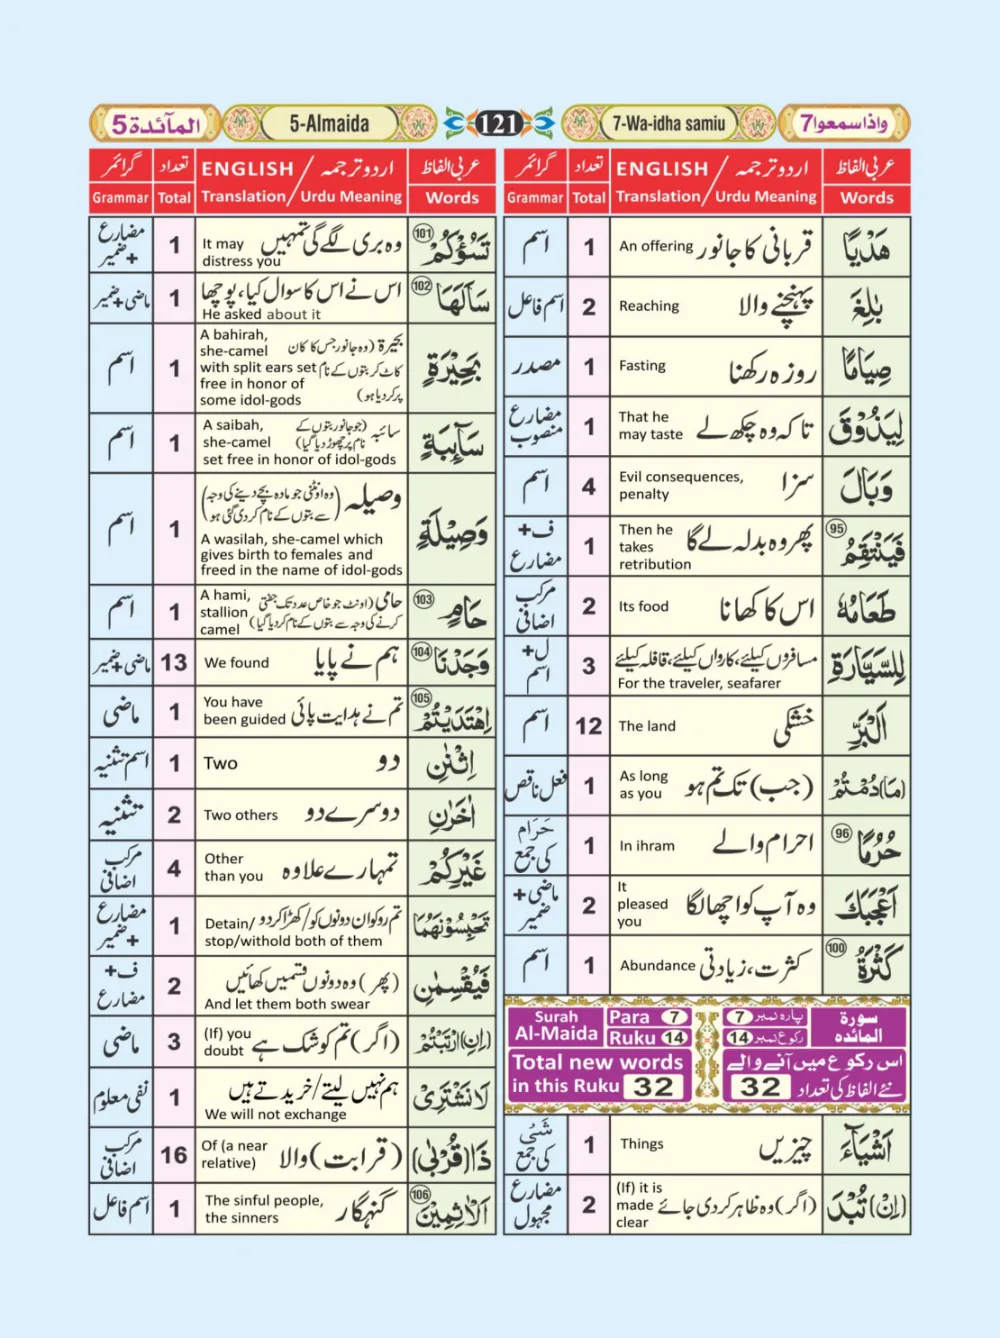 المآئدة 5
5-Almaida
121
7-Wa-idha samiu
واذاسمعوا 7
عربی الفاظ اردو ترجمہ / ENGLISH تعداد گرائمر
Words Urdu Meaning / Translation Total Grammar
هَدْيًا قربانی کا جانور An offering 1 اسم
بٰلِغَ پہنچنے والا Reaching 2 اسم فاعل
صِيَامًا روزہ رکھنا Fasting 1 مصدر
لِيَذُوْقَ تاکہ وہ چکھ لے That he may taste 1 مضارع منصوب
وَبَالَ سزا Evil consequences, penalty 4 اسم
فَيَنْتَقِمُ 95 پھر وہ بدلہ لے گا Then he takes retribution 1 ف+ مضارع
طَعَامُهٗ اس کا کھانا Its food 2 مرکب اضافی
لِلسَّيَّارَةِ مسافروں کیلئے، کارواں کیلئے، قافلہ کیلئے For the traveler, seafarer 3 ل+ اسم
اَلْبَرِّ خشکی The land 12 اسم
(مَا) دُمْتُمْ (جب) تک تم ہو As long as you 1 فعل ناقص
حُرُمًا 96 احرام والے In ihram 1 حَرَام کی جمع
اَعْجَبَكَ وہ آپ کو اچھا لگا It pleased you 2 ماضی+ ضمیر
كَثْرَةُ 100 کثرت، زیادتی Abundance 1 اسم
Surah Al-Maida Para 7 Ruku 14
سورة المائدہ پارہ نمبر 7 رکوع نمبر 14
Total new words in this Ruku 32
اس رکوع میں آنے والے نئے الفاظ کی تعداد 32
اَشْيَآءَ چیزیں Things 1 شَىْءٌ کی جمع
(اِنْ) تُبْدَ (اگر) وہ ظاہر کردی جائے (If) it is made clear 2 مضارع مجہول
عربی الفاظ اردو ترجمہ / ENGLISH تعداد گرائمر
Words Urdu Meaning / Translation Total Grammar
تَسُؤْكُمْ 101 وہ بری لگے گی تمہیں It may distress you 1 مضارع + ضمیر
سَاَلَهَا 102 اس نے اس کا سوال کیا، پوچھا He asked about it 1 ماضی+ضمیر
بَحِيْرَةٍ بحیرة (وہ جانور جس کا کان کاٹ کر بتوں کے نام پر کردیا ہو) A bahirah, she-camel with split ears set free in honor of some idol-gods 1 اسم
سَآئِبَةٍ سائبہ (جو جانور بتوں کے نام پر چھوڑ دیا گیا) A saibah, she-camel set free in honor of idol-gods 1 اسم
وَصِيْلَةٍ وصیلہ (وہ اونٹنی جو مادہ بچے دینے کی وجہ سے بتوں کے نام کردی گئی ہو) A wasilah, she-camel which gives birth to females and freed in the name of idol-gods 1 اسم
حَامٍ 103 حامی (اونٹ جو خاص عدد تک جفتی کرنے کی وجہ سے بتوں کے نام کردیا گیا) A hami, stallion camel 1 اسم
وَجَدْنَا 104 ہم نے پایا We found 13 ماضی+ضمیر
اِهْتَدَيْتُمْ 105 تم نے ہدایت پائی You have been guided 1 ماضی
اِثْنٰنِ دو Two 1 اسم تثنیہ
اٰخَرٰنِ دوسرے دو Two others 2 تثنیہ
غَيْرِكُمْ تمہارے علاوہ Other than you 4 مرکب اضافی
تَحْبِسُوْنَهُمَا تم روکو ان دونوں کو/ کھڑا کردو Detain/ stop/withold both of them 1 مضارع + ضمیر
فَيُقْسِمٰنِ (پھر) وہ دونوں قسمیں کھائیں And let them both swear 2 ف+ مضارع
(اِنِ) ارْتَبْتُمْ (اگر) تم کو شک ہے (If) you doubt 3 ماضی
لَا نَشْتَرِىْ ہم نہیں لیتے/خریدتے ہیں We will not exchange 1 نفی معلوم
ذَا (قُرْبٰى) (قرابت) والا Of (a near relative) 16 مرکب اضافی
اَلْاٰثِمِيْنَ 106 گنہگار The sinful people, the sinners 1 اسم فاعل